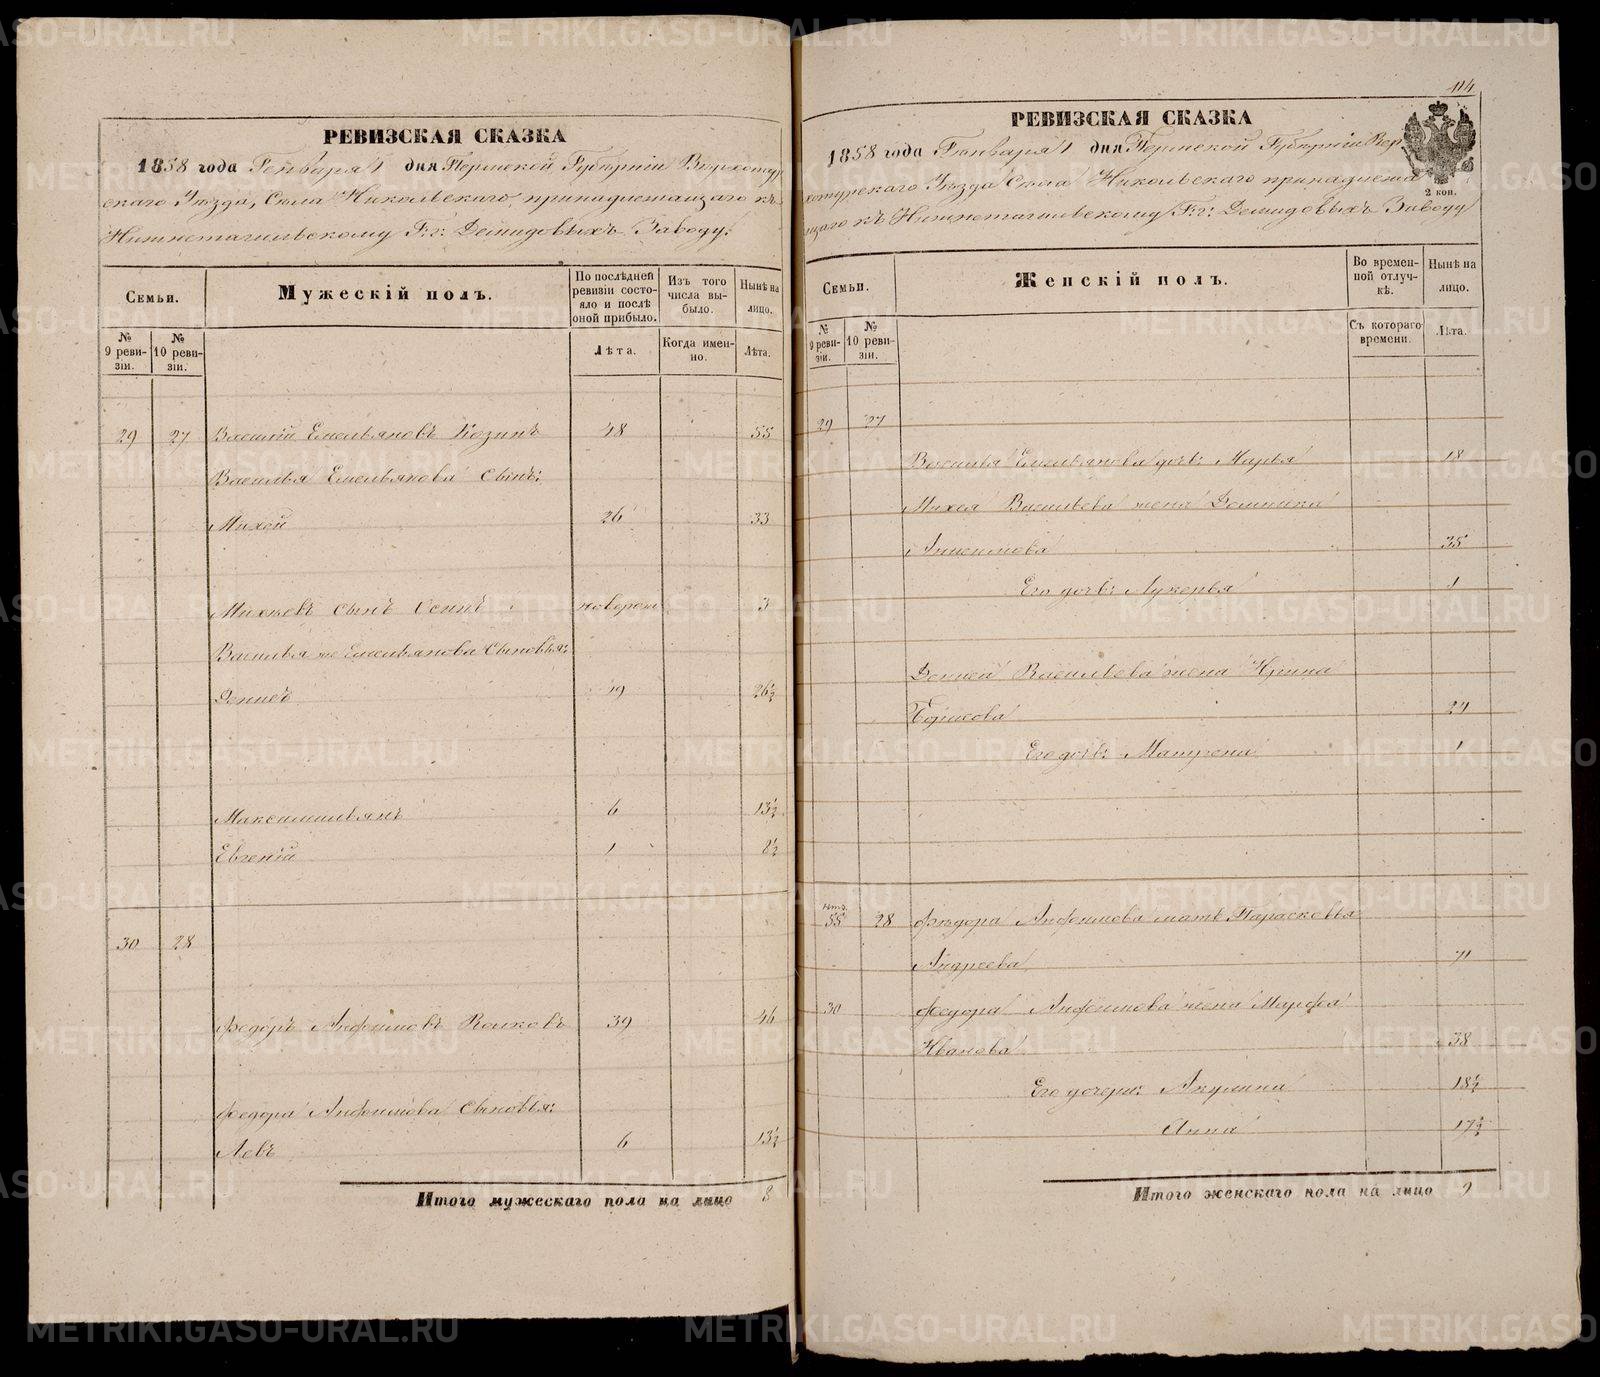 РЕВИЗСКАЯ СКАЗКА
1858 года Генваря 1 дня Пермской Губерніи Верхотур
скаго Уѣзда, Села Никольскаго, принадлежащаго къ
Нижнетагильскому Г.г: Демидовыхъ Заводу.
Семьи.
Мужескій полъ.
По послѣдней ревизіи состояло и послѣ оной прибыло.
Изъ того числа выбыло.
Нынѣ на лицо.
№ 9 ревизіи.
№ 10 ревизіи.
Лѣта.
Когда именно.
Лѣта.
29 27 Василій Емельяновъ Козинъ 48 55
Василья Емельянова Сынъ:
Михей 26 33
Михеевъ сынъ Осипъ новорож 3
Василья же Емельянова Сыновья:
Денисъ 19 26½
Максимильянъ 6 13½
Евгеній 1 8½
30 28
Федоръ Анфимовъ Волковъ 39 46
Федора Анфимова Сыновья:
Левъ 6 13½
Итого мужескаго пола на лицо 8
114
РЕВИЗСКАЯ СКАЗКА
1858 года Генваря 1 дня Пермской Губерніи Вер
хотурскаго Уѣзда Села Никольскаго принадлежа
щаго къ Нижнетагильскому Г.г: Демидовыхъ Заводу
2 коп.
Семьи.
Женскій полъ.
Во временной отлучкѣ.
Нынѣ на лицо.
№ 9 ревизіи.
№ 10 ревизіи.
Съ котораго времени.
Лѣта.
29 27
Василья Емельянова дочь Марья 18
Михея Васильева жена Домника
Анисимова 35
Его дочь: Лукерья 1
Денися Васильева жена Ирина
Борисова 24
Его дочь: Матрена 1
55 28 Федора Анфимова мать Парасковья
Андреева 71
30 Федора Анфимова жена Марфа
Иванова 38
Его дочери: Акулина 18½
Анна 17½
Итого женскаго пола на лицо 9
METRIKI.GASO-URAL.RU